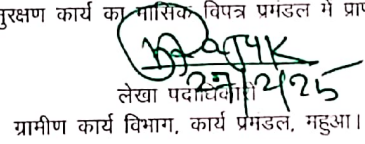 नुरक्षण कार्य का मासिक विपत्र प्रमंडल में प्राप
27/2/25
लेखा पदाधिकारी
ग्रामीण कार्य विभाग, कार्य प्रमंडल, महुआ।